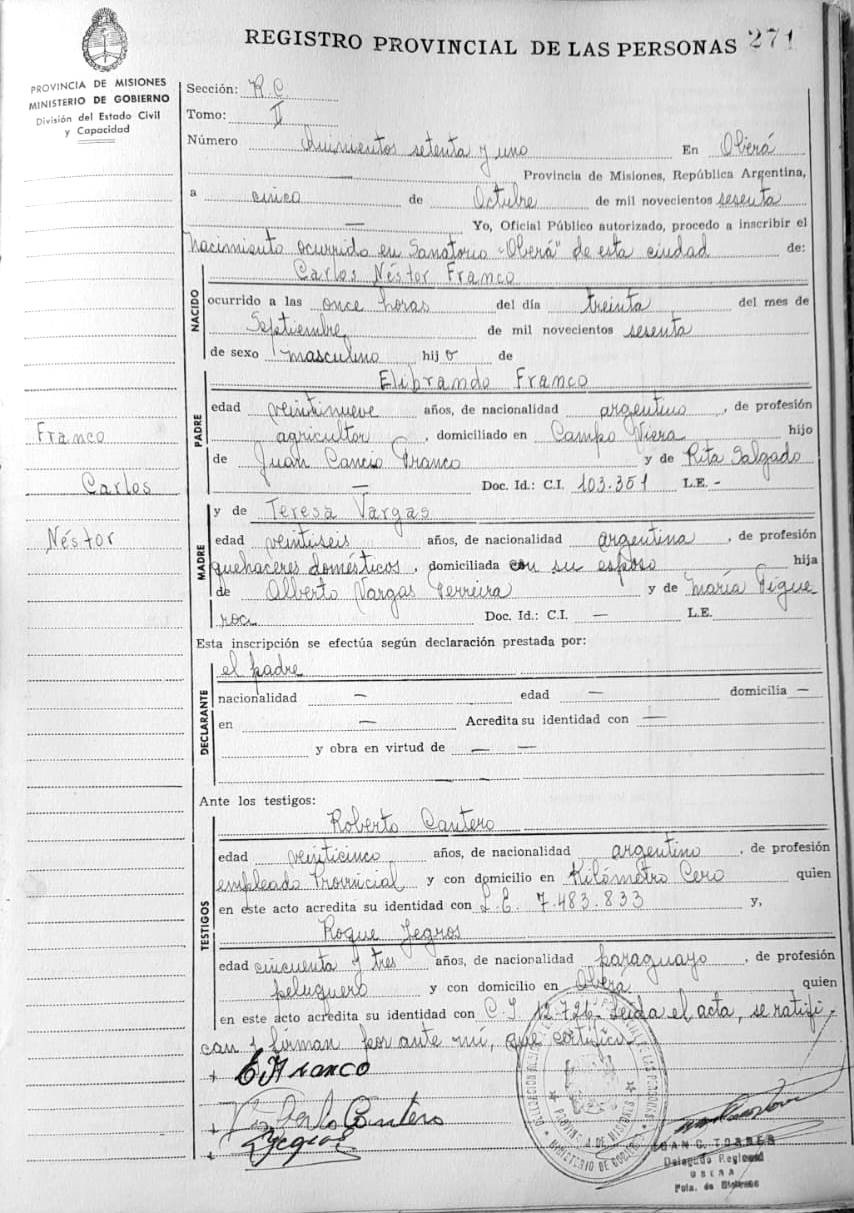 REGISTRO PROVINCIAL DE LAS PERSONAS 271
PROVINCIA DE MISIONES
MINISTERIO DE GOBIERNO
División del Estado Civil
y Capacidad
Sección: R.C.
Tomo: II
Número Quinientos setenta y uno En Oberá
Provincia de Misiones, República Argentina,
a cinco de Octubre de mil novecientos sesenta
— Yo, Oficial Público autorizado, procedo a inscribir el
Nacimiento ocurrido en Sanatorio "Oberá" de esta ciudad de:
NACIDO
Carlos Néstor Franco
ocurrido a las once horas del día treinta del mes de
Septiembre de mil novecientos sesenta
de sexo masculino hijo de
PADRE
Elibrando Franco
edad veintinueve años, de nacionalidad argentino, de profesión
agricultor, domiciliado en Campo Viera hijo
de Juan Cancio Franco y de Rita Salgado
— Doc. Id.: C.I. 103.351 L.E. -
Franco
Carlos
Néstor
MADRE
y de Teresa Vargas
edad veintiseis años, de nacionalidad argentina, de profesión
quehaceres domésticos, domiciliada con su esposo hija
de Alberto Vargas Ferreira y de María Figue
roa Doc. Id.: C.I. — L.E.
Esta inscripción se efectúa según declaración prestada por:
DECLARANTE
el padre
nacionalidad — edad — domicilia —
en — Acredita su identidad con —
y obra en virtud de — —
Ante los testigos:
TESTIGOS
Roberto Cantero
edad veinticinco años, de nacionalidad argentino, de profesión
empleado Provincial y con domicilio en Kilómetro Cero quien
en este acto acredita su identidad con L.E. 7.483.833 y,
Roque Jegros
edad cincuenta y tres años, de nacionalidad paraguayo, de profesión
peluquero y con domicilio en Oberá. quien
en este acto acredita su identidad con C.I. 12.726. Leida el acta, se ratifi-
can y firman por ante mí, que certifico.
E Franco
Roberto Cantero
PROVINCIA DE MISIONES
MINISTERIO DE GOBIERNO
JUAN C. TORRES
Delegado Regional
OBERA
Pcia. de Misiones